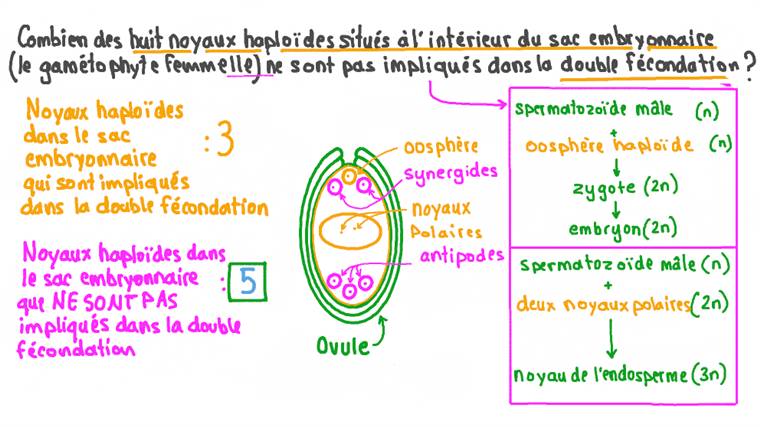 Combien des huit noyaux haploïdes situés à l'intérieur du sac embryonnaire
(le gamétophyte femmelle) ne sont pas impliqués dans la double fécondation ?
Noyaux haploïdes
dans le sac
embryonnaire
qui sont impliqués
dans la double fécondation
: 3
Noyaux haploïdes dans
le sac embryonnaire
que NE SONT PAS
impliqués dans la double
fécondation
: 5
oosphère
synergides
noyaux
Polaires
antipodes
Ovule
spermatozoïde mâle (n)
+
oosphère haploïde (n)
zygote (2n)
embryon (2n)
spermatozoïde mâle (n)
+
deux noyaux polaires (2n)
noyau de l'endosperme (3n)